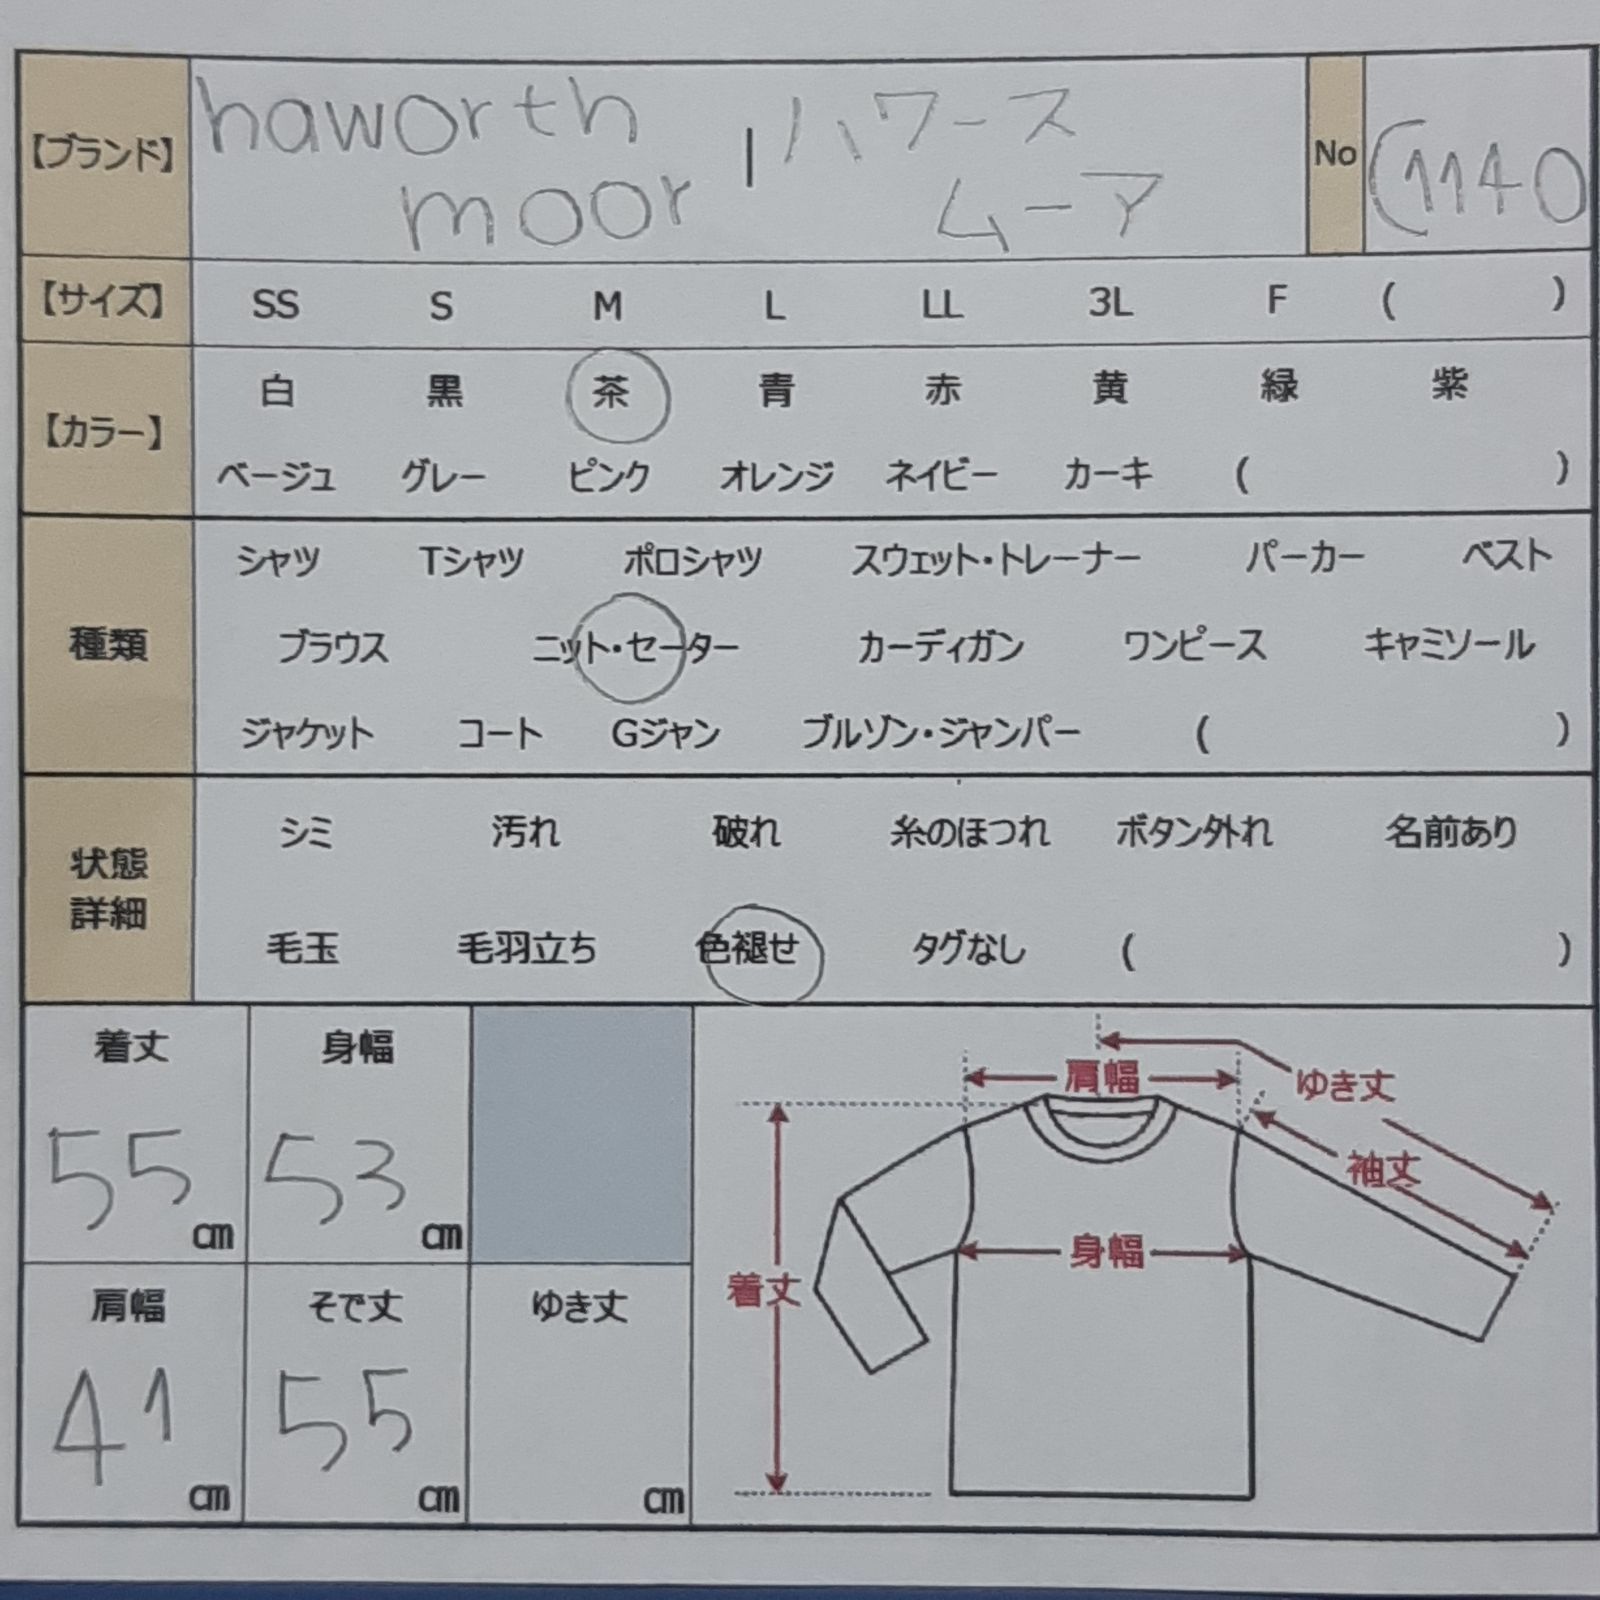 【ブランド】 haworth moor | ハワース ムーア No (1140
【サイズ】 SS S M L LL 3L F ( )
【カラー】 白 黒 茶 青 赤 黄 緑 紫
ベージュ グレー ピンク オレンジ ネイビー カーキ ( )
種類 シャツ Tシャツ ポロシャツ スウェット・トレーナー パーカー ベスト
ブラウス ニット・セーター カーディガン ワンピース キャミソール
ジャケット コート Gジャン ブルゾン・ジャンパー ( )
状態詳細 シミ 汚れ 破れ 糸のほつれ ボタン外れ 名前あり
毛玉 毛羽立ち 色褪せ タグなし ( )
着丈 身幅
55cm 53cm
肩幅 そで丈 ゆき丈
41cm 55cm cm
肩幅 ゆき丈
袖丈
身幅
着丈